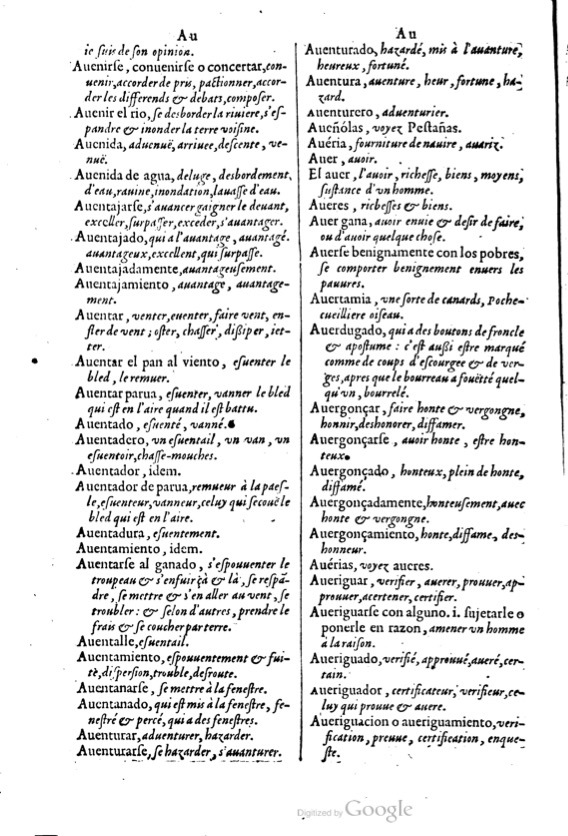 Au
ie ſuis de ſon opinion.
Auenirſe, conuenirſe o concertar, con-
uenir, accorder de pris, pactionner, accor-
der les differends & debats, compoſer.
Auenir el rio, ſe desborder la riuiere, s'eſ-
pandre & inonder la terre voiſine.
Auenida, aduenuë, arriuee, deſcente, ve-
nuë.
Auenida de agua, deluge, desbordement
d'eau, rauine, inondation, lauaſſe d'eau.
Auentajarſe, s'auancer gaigner le deuant,
exceller, ſurpaſſer, exceder, s'auantager.
Auentajado, qui a l'auantage, auantagé.
auantageux, excellent, qui ſurpaſſe.
Auentajadamente, auantageuſement.
Auentajamiento, auantage, auantage-
ment.
Auentar, venter, euenter, faire vent, en-
fler de vent; oſter, chaſſer, diſſiper, iet-
ter.
Auentar el pan al viento, eſuenter le
bled, le remuer.
Auentar parua, eſuenter, vanner le bled
qui eſt en l'aire quand il eſt battu.
Auentado, eſuenté, vanné.
Auentadero, vn eſuentail, vn van, vn
eſuentoir, chaſſe-mouches.
Auentador, idem.
Auentador de parua, remueur à la paeſ-
le, eſuenteur, vanneur, celuy qui ſecouë le
bled qui eſt en l'aire.
Auentadura, eſuentement.
Auentamiento, idem.
Auentarſe al ganado, s'eſpouuenter le
troupeau & s'enfuir çà & là, ſe reſpā-
dre, ſe mettre & s'en aller au vent, ſe
troubler: & ſelon d'autres, prendre le
frais & ſe coucher par terre.
Auentalle, eſuentail.
Auentamiento, eſpouuentement & fui-
tè, diſperſion, trouble, deſroute.
Auentanarſe, ſe mettre à la feneſtre.
Auentanado, qui eſt mis à la feneſtre, fe-
neſtré & percé, qui a des feneſtres.
Auenturar, aduenturer, hazarder.
Auenturarſe, ſe hazarder, s'auanturer.
Au
Auenturado, hazardé, mis à l'auanture,
heureux, fortuné.
Auentura, auenture, heur, fortune, ha-
zard.
Auenturero, aduenturier.
Aueñólas, voyez Peſtañas.
Auéria, fourniture de nauire, auariz.
Auer, auoir.
El auer, l'auoir, richeſſe, biens, moyens,
ſuſtance d'vn homme.
Aueres, richeſſes & biens.
Auer gana, auoir enuie & deſir de faire,
ou d'auoir quelque choſe.
Auerſe benignamente con los pobres,
ſe comporter benignement enuers les
pauures.
Auertamia, vne ſorte de canards, Poche-
cueilliere oiſeau.
Auerdugado, qui a des boutons de froncle
& apoſtume: c'eſt auſſi eſtre marqué
comme de coups d'eſcourgee & de ver-
ges, apres que le bourreau a fouëtté quel-
qu'vn, bourrelé.
Auergonçar, faire honte & vergongne,
honnir, deshonorer, diffamer.
Auergonçarſe, auoir honte, eſtre hon-
teux.
Auergonçado, honteux, plein de honte,
diffamé.
Auergonçadamente, honteuſement, auec
honte & vergongne.
Auergonçamiento, honte, diffame, des-
honneur.
Auérias, voyez aucres.
Aueriguar, verifier, auerer, prouuer, ap-
prouuer, acertener, certifier.
Aueriguarſe con alguno. i. ſujetarle o
ponerle en razon, amener vn homme
à la raiſon.
Aueriguado, verifié, approuué, aueré, cer-
tain.
Aueriguador, certificateur, verifieur, ce-
luy qui prouue & auere.
Aueriguacion o aueriguamiento, veri-
fication, preuue, certification, enque-
ſte.
Digitized by Google